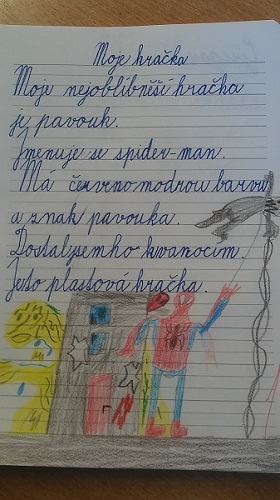 Moje hračka
Moje nejoblíbněší hračka
je pavouk.
Jmenuje se spider-man.
Má červeno modrou barvu
a znak pavouka.
Dostal jsem ho kvanocím.
Jeto plastová hračka.